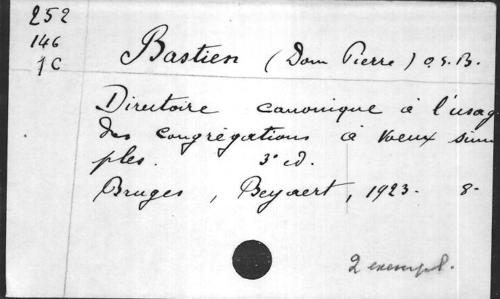 252
146
1C
Bastien (Dom Pierre) O.S.B.
Directoire canonique à l'usag
des congrégations à voeux sim
ples. 3e éd.
Bruges, Beyaert, 1923. 8-
2 exempl.